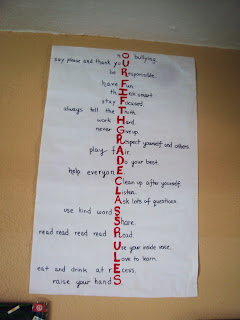 nO bullying.
say please and thank yoU
be Responsible.
have Fun
thInk smart
stay Focused.
always tell the Truth.
work Hard.
never Give up.
Respect yourself and others.
play fAir.
Do your best.
help everyonE
Clean up after yourself
Listen.
Ask lots of questions.
use kind wordS
Share.
read read read read Read.
Use your inside voice.
Love to learn.
eat and drink at rEcess.
raise your handS